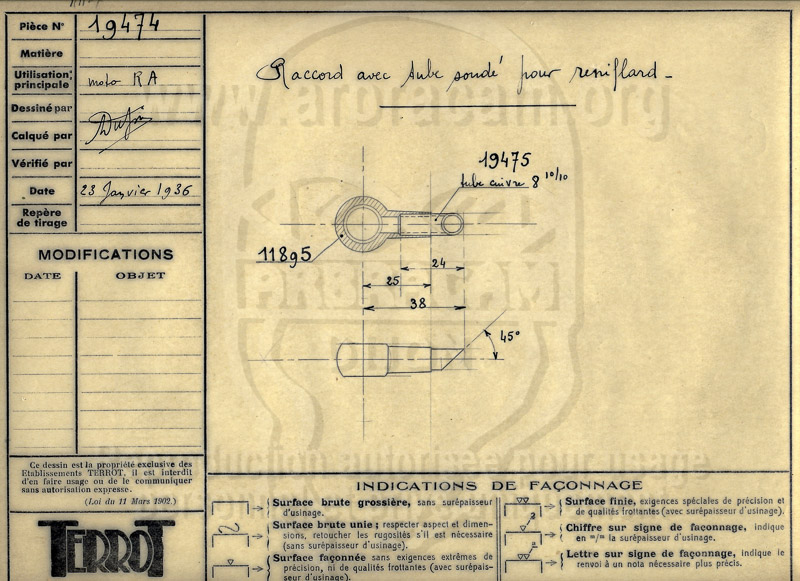 Pièce N° 19474
Matière
Utilisation principale moto RA
Dessiné par
Calqué par
Vérifié par
Date 23 Janvier 1936
Repère de tirage
MODIFICATIONS
DATE OBJET
Raccord avec tube soudé pour reniflard -
19475
tube cuivre 8 10/10
11895
24
25
38
45°
Ce dessin est la propriété exclusive des
Etablissements TERROT, il est interdit
d'en faire usage ou de le communiquer
sans autorisation expresse.
(Loi du 11 Mars 1902.)
TERROT
INDICATIONS DE FAÇONNAGE
Surface brute grossière, sans surépaisseur
d'usinage.
Surface brute unie ; respecter aspect et dimen-
sions, retoucher les rugosités s'il est nécessaire
(sans surépaisseur d'usinage).
Surface façonnée sans exigences extrêmes de
précision, ni de qualités frottantes (avec surépais-
seur d'usinage).
Surface finie, exigences spéciales de précision et
de qualités frottantes (avec surépaisseur d'usinage).
Chiffre sur signe de façonnage, indique
en m/m la surépaisseur d'usinage.
Lettre sur signe de façonnage, indique le
renvoi à un nota nécessaire plus précis.
ARORACAM